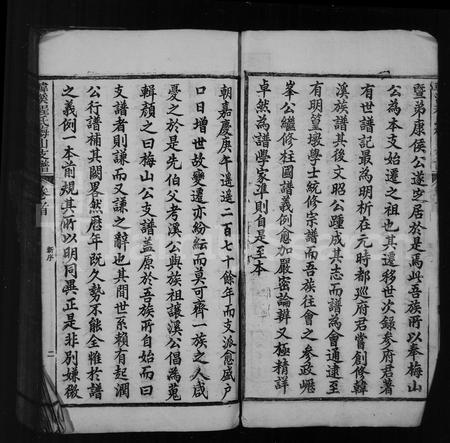 暨弟康侯公遂芝居於是焉此吾族所以奉梅山
公為本支始遷之祖也其遷移世次錄參府君著
有世譜記最為明析在元時都巡府君嘗創修韓
溪族譜其後文昭公踵成其志而譜為會通逮至
有明篁墩學士統修宗譜而吾族往會之參政巗
峯公繼修柱國譜義例愈加嚴密論辨又極精詳
卓然為譜學家準則自是至本
朝嘉慶庚午遙遙二百七十餘年而支派愈盛戶
口日增世故變遷亦紛紜而莫可齊一族之人咸
憂之於是先伯父考溪公與族祖讓溪公倡為蒐
輯顏之曰梅山公支譜蓋原於吾族所自始而曰
支譜者則謙而又謙之辭也其間世系賴有起潤
公行譜補其闕畧然歷年既久勢不能全惟於譜
之義例一本前規其所以明同異正是非別嫌微
韓溪程氏梅山支譜
卷首
新序
二